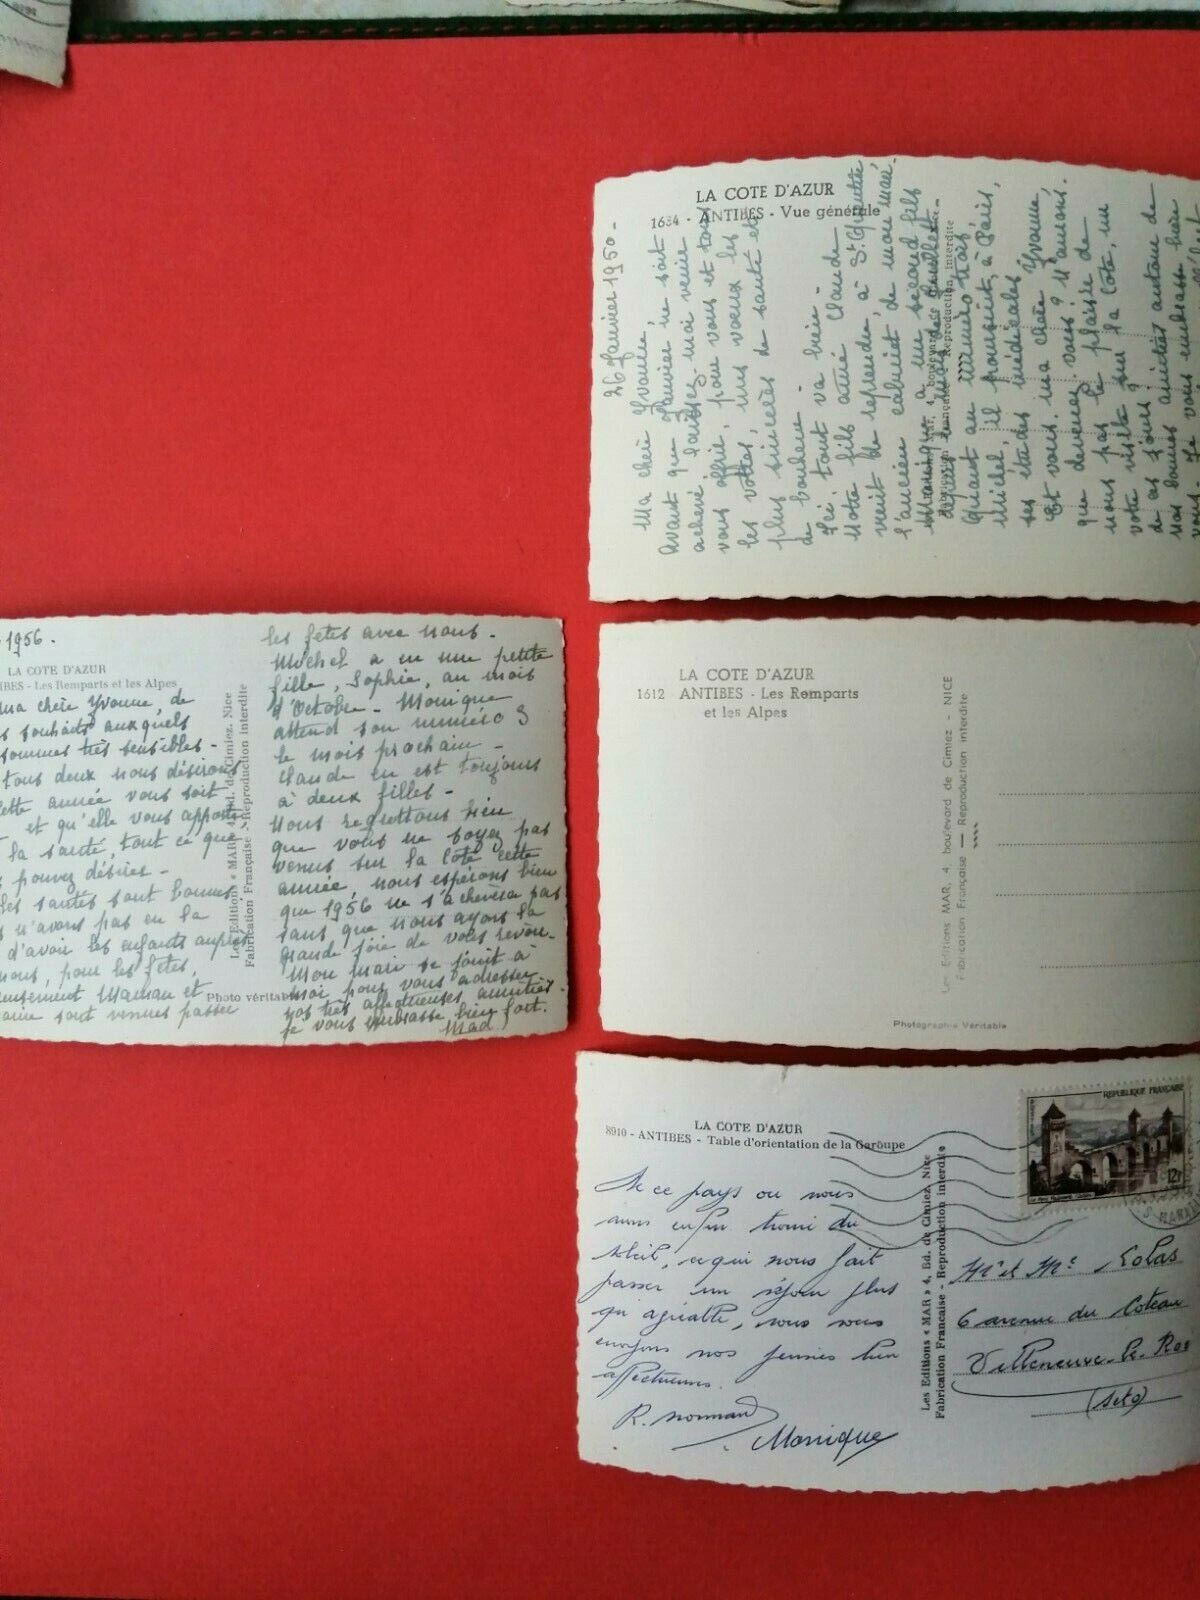 LA COTE D'AZUR
1634 - ANTIBES - Vue générale
26 Janvier 1950 -
Ma chère Yvonne,
Avant que Janvier ne soit
achevé, laissez-moi venir
vous offrir, pour vous et tous
les vôtres, nos voeux les
plus sincères de santé et
de bonheur -
Ici tout va bien -
Notre fils aîné Claude
vient de reprendre, à St Quentin
l'ancien cabinet de mon mari.
Monique a un second fils
depuis le mois de Juillet -
Quant au numéro trois,
Michel, il poursuit, à Paris,
ses études médicales
Et vous, ma chère Yvonne,
que devenez vous? N'aurons
nous pas le plaisir de
votre visite sur la Côte, un
de ces jours?
nos bonnes amitiés autour de
vous - Je vous embrasse bien
Les Editions MAR, 4 boulevard de Cimiez - Nice
Fabrication Française - Reproduction interdite
1956 -
LA COTE D'AZUR
IBES - Les Remparts et les Alpes
ma chère Yvonne, de
souhaits auxquels
sommes très sensibles -
tous deux nous désirons
cette année vous soit
et qu'elle vous apporte
la santé, tout ce que
pouvez désirer -
les santés sont bonnes
n'avons pas eu la
d'avoir les enfants auprès
nous, pour les fêtes,
Maman et
sont venues passer
Les Editions « MAR » 4, Bd. de Cimiez, Nice
Fabrication Française - Reproduction interdite
Photo véritable
les fêtes avec nous -
Michel a eu une petite
fille, Sophie, au mois
d'Octobre - Monique
attend son numéro 3
le mois prochain -
Claude en est toujours
à deux filles -
Nous regrettons bien
que vous ne soyez pas
venus sur la Côte cette
année, nous espérons bien
que 1956 ne s'achèvera pas
sans que nous ayons la
grande joie de vous revoir -
Mon mari se joint à
moi pour vous adresser
nos très affectueuses amitiés -
Je vous embrasse bien fort.
Mad
LA COTE D'AZUR
1612 - ANTIBES - Les Remparts
et les Alpes
Les Editions MAR, 4 boulevard de Cimiez - NICE
Fabrication Française — Reproduction interdite
Photographie Véritable
LA COTE D'AZUR
8910 - ANTIBES - Table d'orientation de la Garoupe
De ce pays où nous
avons enfin trouvé du
soleil, ce qui nous fait
passer un séjour plus
qu'agréable, nous vous
envoyons nos pensées bien
affectueuses.
R. Normand
Monique
Les Editions « MAR » 4, Bd. de Cimiez, Nice
Fabrication Française - Reproduction interdite
REPUBLIQUE FRANÇAISE
12F
Mr et Me Lolas
6 avenue du Coteau
Villeneuve-le-Roi
(S et O)